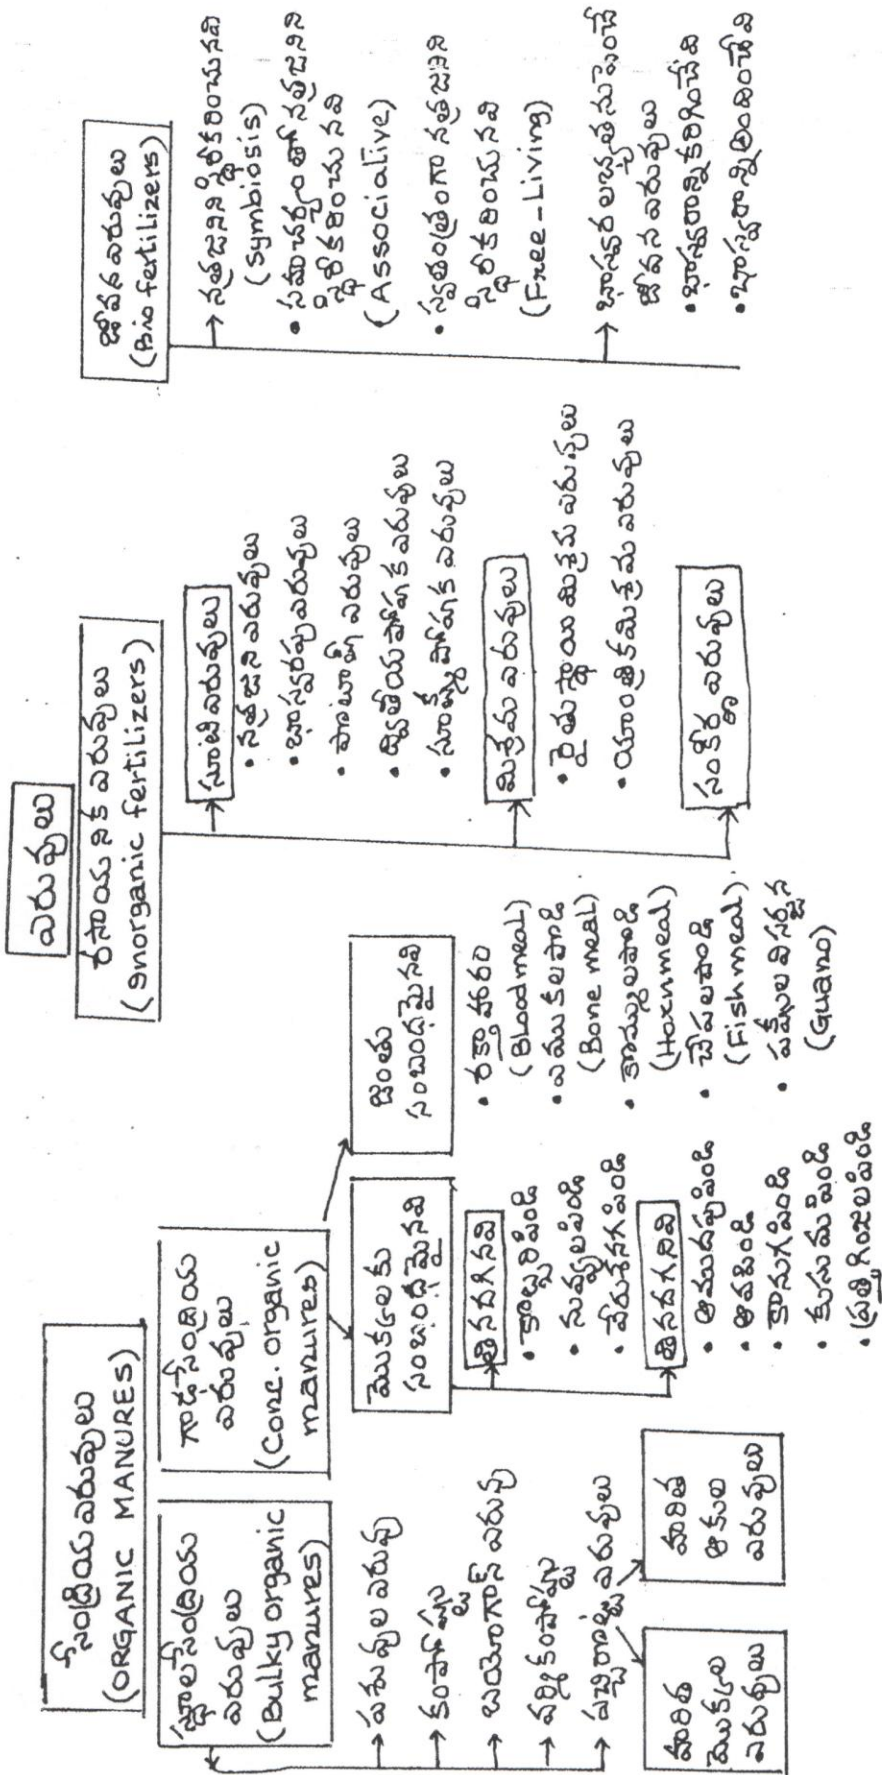 ఎరువులు
సేంద్రియ ఎరువులు
(ORGANIC MANURES)
స్థూల సేంద్రియ
ఎరువులు
(Bulky organic
manures)
పశువుల ఎరువు
కంపోస్టు
బయోగాస్ ఎరువు
వర్మికంపోస్టు
పచ్చిరొట్ట ఎరువులు
హరిత
మొక్కల
ఎరువులు
హరిత
ఆకుల
ఎరువులు
గాఢ సేంద్రియ
ఎరువులు
(Conc. organic
manures)
మొక్కలకు
సంబంధమైనవి
తినదగినవి
• కొబ్బరిపిండి
• నువ్వులపిండి
• వేరుశనగపిండి
తినదగనివి
• ఆముదపుపిండి
• ఆవపిండి
• కానుగపిండి
• కుసుమపిండి
• ప్రత్తిగింజలపిండి
జంతు
సంబంధమైనవి
• రక్తాహారం
(Bloodmeal)
• ఎముకలపొడి
(Bone meal)
• కొమ్ములపొడి
(Hornmeal)
• చేపలపొడి
(Fishmeal)
• పక్షుల విసర్జన
(Guano)
రసాయనిక ఎరువులు
(Inorganic fertilizers)
సూటి ఎరువులు
• నత్రజని ఎరువులు
• భాస్వరపు ఎరువులు
• పొటాష్ ఎరువులు
• ద్వితీయపోషక ఎరువులు
• సూక్ష్మపోషక ఎరువులు
మిశ్రమ ఎరువులు
• రైతుస్థాయి మిశ్రమ ఎరువులు
• యాంత్రిక మిశ్రమ ఎరువులు
సంకీర్ణ ఎరువులు
జీవన ఎరువులు
(Bio fertilizers)
నత్రజనిని స్థిరీకరించునవి
(Symbiosis)
• సహచర్యంతో నత్రజనిని
స్థిరీకరించునవి
(Associative)
• స్వతంత్రంగా నత్రజనిని
స్థిరీకరించునవి
(Free-Living)
భాస్వర లభ్యతను పెంచే
జీవన ఎరువులు
• భాస్వరాన్ని కరిగించేవి
• భాస్వరాన్ని అందించేవి